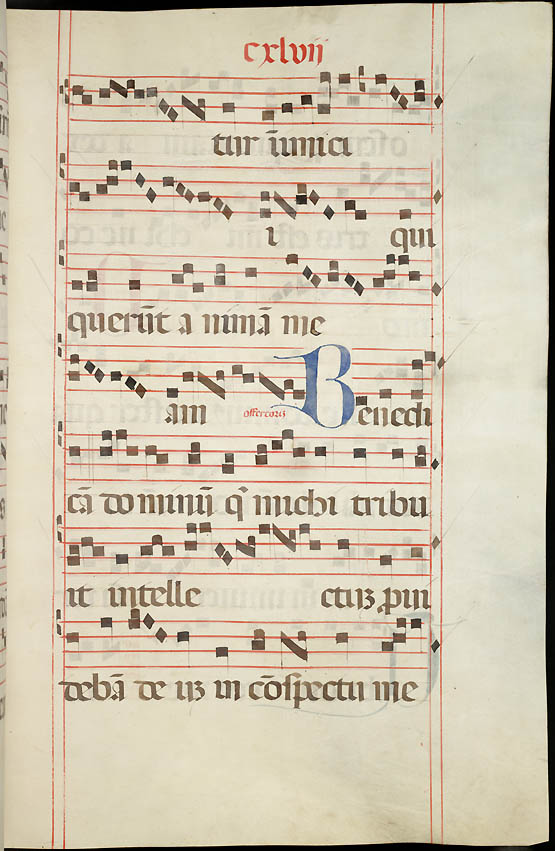 cxlvij
tur īimici
i qui
querūt a nimā me
am offertoriū Benedi
cā dominū q̄ michi tribu
it intelle ctuȝ pui
debā de uȝ in cōspectu me